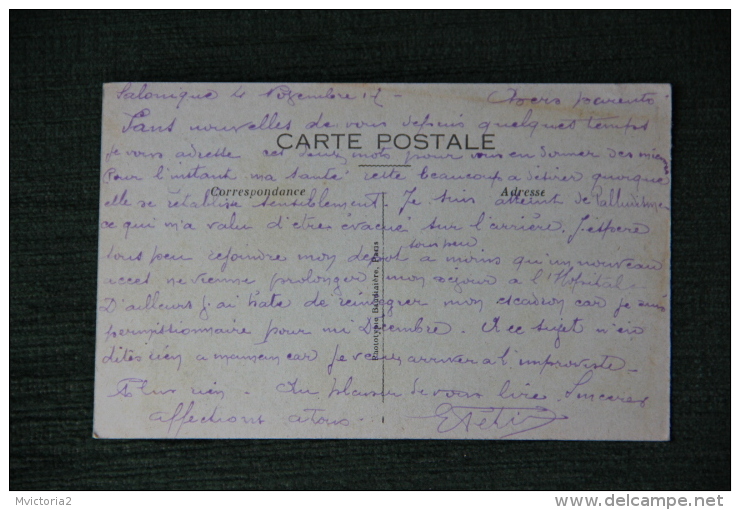 Salonique 4 Novembre 17 - Chers parents
Sans nouvelles de vous depuis quelques temps
CARTE POSTALE
je vous adresse ces deux mots pour vous en donner des miennes
Pour l'instant ma santé reste beaucoup à désirer quoique
Correspondance Adresse
elle se rétablisse sensiblement. Je suis atteint de Paludisme
ce qui m'a valu d'être évacué sur l'arrière. J'espère
sous peu rejoindre mon dépôt à moins qu'un nouveau
accès ne vienne prolonger mon séjour à l'Hopital.
D'ailleurs j'ai hâte de réintégrer mon escadron car je suis
permissionnaire pour mi Décembre. A ce sujet n'en
dites rien a maman car je veux arriver à l'improviste.
Plus rien. Au plaisir de vous lire. Sincères
affections a tous.
Phototypie Baudinière, Paris
Mvictoria2
http://www.delcampe.net